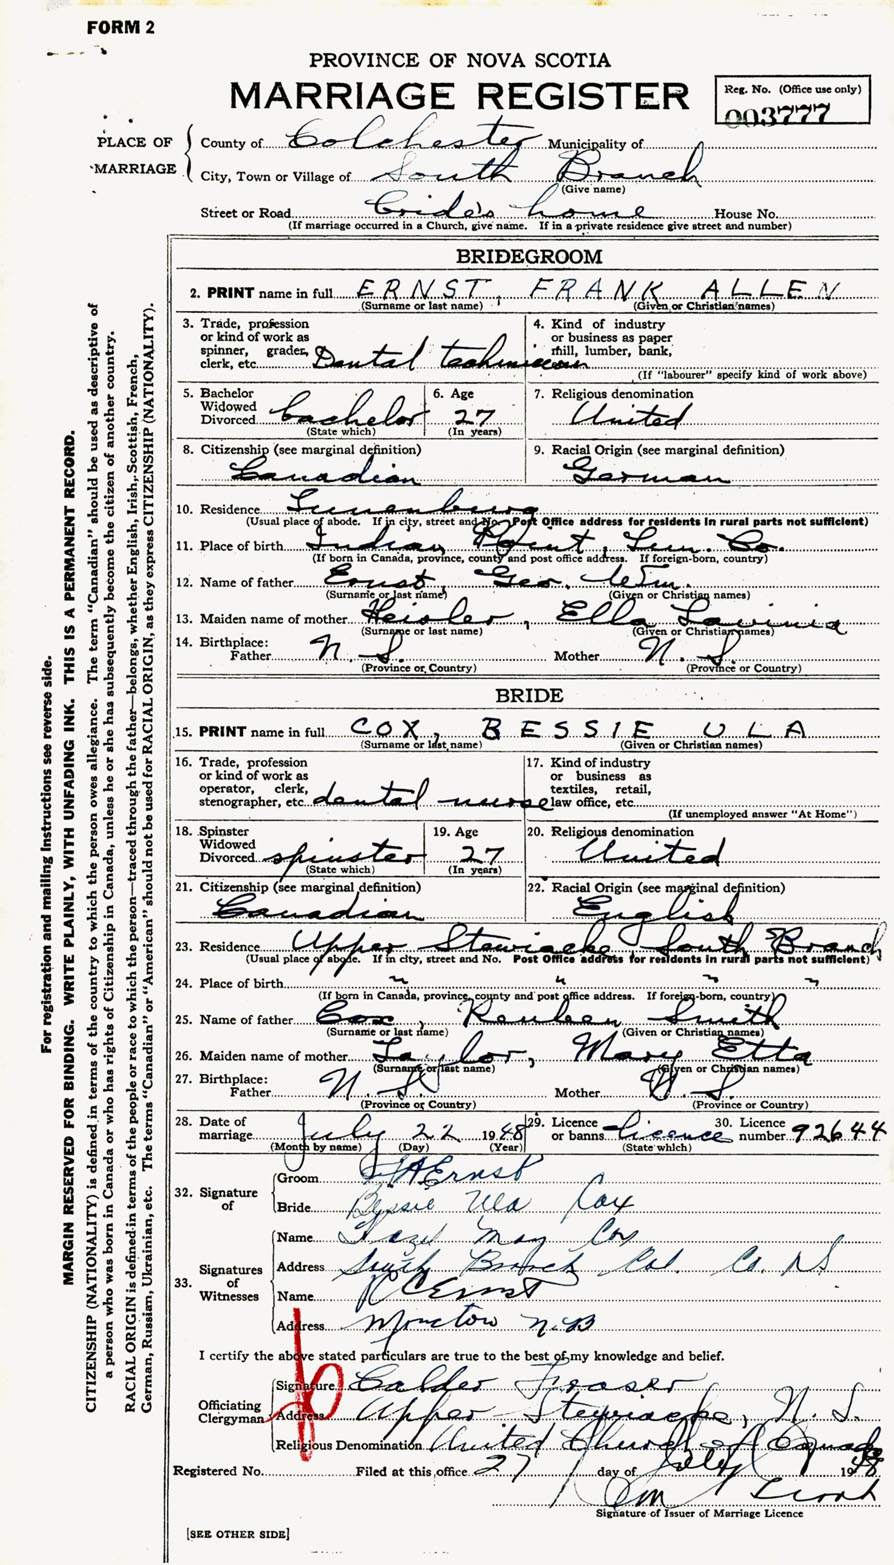 FORM 2
PROVINCE OF NOVA SCOTIA
MARRIAGE REGISTER
Reg. No. (Office use only)
003777
PLACE OF MARRIAGE
County of Colchester Municipality of
City, Town or Village of South Branch
(Give name)
Street or Road Bride's home House No.
(If marriage occurred in a Church, give name. If in a private residence give street and number)
BRIDEGROOM
2. PRINT name in full ERNST, FRANK ALLEN
(Surname or last name) (Given or Christian names)
3. Trade, profession or kind of work as spinner, grader, clerk, etc. Dental technician
4. Kind of industry or business as paper mill, lumber, bank,
(If "labourer" specify kind of work above)
5. Bachelor Widowed Divorced bachelor
(State which)
6. Age 27
(In years)
7. Religious denomination
United
8. Citizenship (see marginal definition)
Canadian
9. Racial Origin (see marginal definition)
German
10. Residence Lunenburg
(Usual place of abode. If in city, street and No. Post Office address for residents in rural parts not sufficient)
11. Place of birth Indian Point, Lun. Co.
(If born in Canada, province, county and post office address. If foreign-born, country)
12. Name of father Ernst, Geo. Wm.
(Surname or last name) (Given or Christian names)
13. Maiden name of mother Heisler, Ella Lavinia
(Surname or last name) (Given or Christian names)
14. Birthplace:
Father N. S. Mother N. S.
(Province or Country) (Province or Country)
BRIDE
15. PRINT name in full COX, BESSIE ULA
(Surname or last name) (Given or Christian names)
16. Trade, profession or kind of work as operator, clerk, stenographer, etc. dental nurse
17. Kind of industry or business as textiles, retail, law office, etc.
(If unemployed answer "At Home")
18. Spinster Widowed Divorced spinster
(State which)
19. Age 27
(In years)
20. Religious denomination
United
21. Citizenship (see marginal definition)
Canadian
22. Racial Origin (see marginal definition)
English
23. Residence Upper Stewiacke South Branch
(Usual place of abode. If in city, street and No. Post Office address for residents in rural parts not sufficient)
24. Place of birth " " " "
(If born in Canada, province, county and post office address. If foreign-born, country)
25. Name of father Cox, Reuben Smith
(Surname or last name) (Given or Christian names)
26. Maiden name of mother Taylor, Mary Etta
(Surname or last name) (Given or Christian names)
27. Birthplace:
Father N. S. Mother N. S.
(Province or Country) (Province or Country)
28. Date of marriage July 22 1948
(Month by name) (Day) (Year)
29. Licence or banns licence
(State which)
30. Licence number 92644
32. Signature of
Groom F A Ernst
Bride Bessie Ula Cox
33. Signatures of Witnesses
Name Hazel May Cox
Address South Branch Col. Co. NS
Name R C Ernst
Address Moncton N.B
I certify the above stated particulars are true to the best of my knowledge and belief.
Officiating Clergyman
Signature Calder Fraser
Address Upper Stewiacke, N. S.
Religious Denomination United Church of Canada
Registered No. Filed at this office 27 day of July 1948
Signature of Issuer of Marriage Licence
[SEE OTHER SIDE]
For registration and mailing instructions see reverse side.
MARGIN RESERVED FOR BINDING. WRITE PLAINLY, WITH UNFADING INK. THIS IS A PERMANENT RECORD.
CITIZENSHIP (NATIONALITY) is defined in terms of the country to which the person owes allegiance. The term "Canadian" should be used as descriptive of
a person who was born in Canada or who has rights of Citizenship in Canada, unless he or she has subsequently become the citizen of another country.
RACIAL ORIGIN is defined in terms of the people or race to which the person—traced through the father—belongs, whether English, Irish, Scottish, French,
German, Russian, Ukrainian, etc. The terms "Canadian" or "American" should not be used for RACIAL ORIGIN, as they express CITIZENSHIP (NATIONALITY).